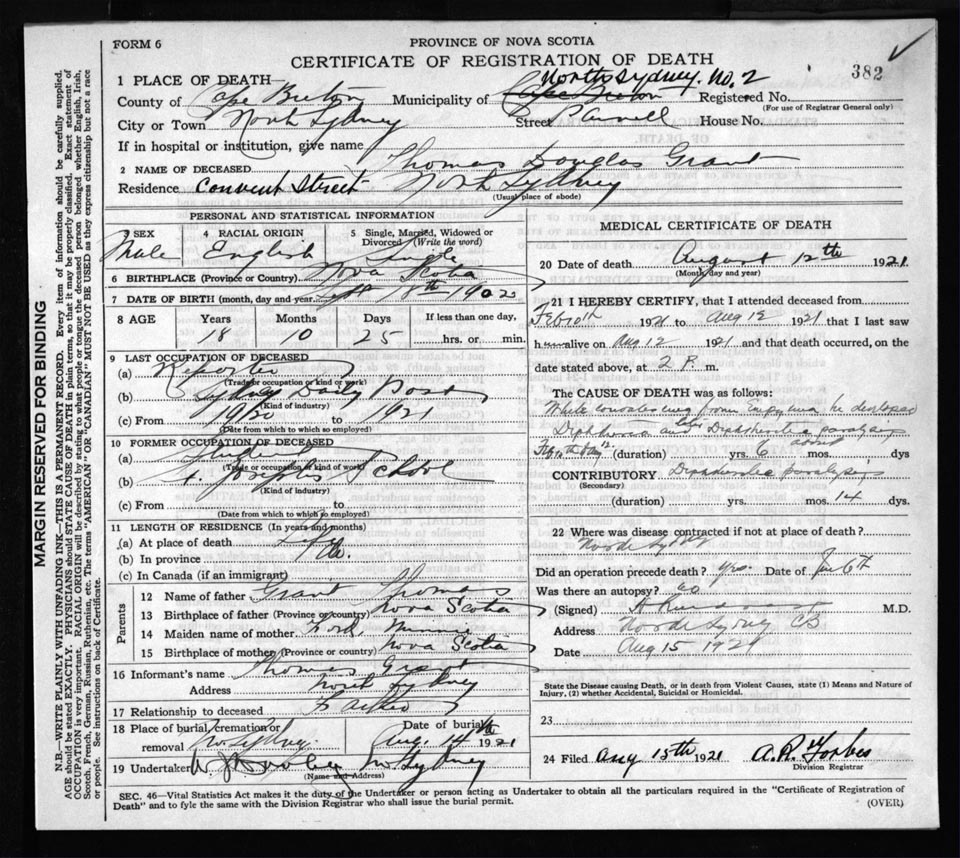 FORM 6
PROVINCE OF NOVA SCOTIA
CERTIFICATE OF REGISTRATION OF DEATH
382
1 PLACE OF DEATH— North Sydney. No. 2
County of Cape Breton Municipality of Cape Breton Registered No.
(For use of Registrar General only)
City or Town North Sydney Street House No.
If in hospital or institution, give name
2 NAME OF DECEASED Thomas Douglas Grant
Residence Convent Street North Sydney
(Usual place of abode)
PERSONAL AND STATISTICAL INFORMATION
3 SEX 4 RACIAL ORIGIN 5 Single, Married, Widowed or Divorced (Write the word)
Male English Single
6 BIRTHPLACE (Province or Country) Nova Scotia
7 DATE OF BIRTH (month, day and year) Sept 18th 1902
8 AGE Years Months Days If less than one day,
18 10 25 hrs. or min.
9 LAST OCCUPATION OF DECEASED
(a) Reporter
(Trade or occupation or kind of work)
(b) Sydney Daily Post
(Kind of industry)
(c) From 1920 1921
(Date from which to which so employed)
10 FORMER OCCUPATION OF DECEASED
(a) Student
(Trade or occupation or kind of work)
(b) St. Josephs School
(Kind of industry)
(c) From
(Date from which to which so employed)
11 LENGTH OF RESIDENCE (In years and months)
(a) At place of death Life
(b) In province do.
(c) In Canada (if an immigrant)
Parents
12 Name of father Grant Thomas
13 Birthplace of father (Province or country) Nova Scotia
14 Maiden name of mother Ford, Minnie
15 Birthplace of mother (Province or country) Nova Scotia
16 Informant's name Thomas Grant
Address North Sydney
17 Relationship to deceased Father
18 Place of burial, cremation or removal No. Sydney
Date of burial Aug 14th 1921
19 Undertaker No Sydney
(Name and Address)
MEDICAL CERTIFICATE OF DEATH
20 Date of death August 12th 1921
(Month, day and year)
21 I HEREBY CERTIFY, that I attended deceased from
Feb 10th 1921 to Aug 12 1921 that I last saw
h alive on Aug 12 1921 and that death occurred, on the
date stated above, at 2 P. m.
The CAUSE OF DEATH was as follows:
While convalescing from Empyema he developed
Diphtheria and later Diphtheritic paralysis
(duration) yrs. 6 mos. dys
CONTRIBUTORY Diphtheritic paralysis
(Secondary)
(duration) yrs. mos. 14 dys.
22 Where was disease contracted if not at place of death?
North Sydney
Did an operation precede death? Yes. Date of
Was there an autopsy? no
(Signed) M.D.
Address North Sydney CB
Date Aug 15 1921
State the Disease causing Death, or in death from Violent Causes, state (1) Means and Nature of
Injury, (2) whether Accidental, Suicidal or Homicidal.
23
24 Filed Aug 15th 1921 A.R. Forbes
Division Registrar
SEC. 46—Vital Statistics Act makes it the duty of the Undertaker or person acting as Undertaker to obtain all the particulars required in the "Certificate of Registration of
Death" and to fyle the same with the Division Registrar who shall issue the burial permit.
(OVER)
MARGIN RESERVED FOR BINDING
N.B.—WRITE PLAINLY WITH UNFADING INK—THIS IS A PERMANENT RECORD. Every item of information should be carefully supplied.
AGE should be stated EXACTLY. PHYSICIANS should STATE CAUSE OF DEATH in plain terms, so that it may be properly classified. Exact statement of
OCCUPATION is very important. RACIAL ORIGIN will be described by stating to what people or tongue the deceased person belonged whether English, Irish,
Scotch, French, German, Russian, Ruthenian, etc. The terms "AMERICAN" or "CANADIAN" MUST NOT BE USED as they express citizenship but not a race
or people. See instructions on back of Certificate.